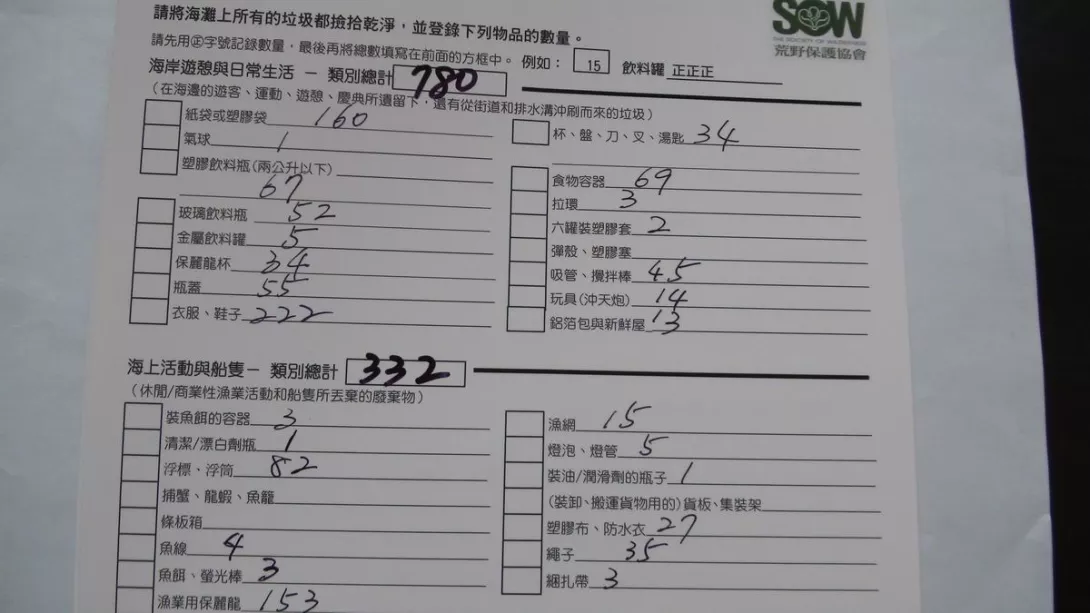 請將海灘上所有的垃圾都撿拾乾淨，並登錄下列物品的數量。
SOW
THE SOCIETY OF WILDERNESS
荒野保護協會
請先用㊣字號記錄數量，最後再將總數填寫在前面的方框中。 例如： 15 飲料罐 正正正
海岸遊憩與日常生活 － 類別總計 780
（在海邊的遊客、運動、遊憩、慶典所遺留下，還有從街道和排水溝沖刷而來的垃圾）
紙袋或塑膠袋 160
氣球 1
塑膠飲料瓶(兩公升以下)
67
玻璃飲料瓶 52
金屬飲料罐 5
保麗龍杯 34
瓶蓋 55
衣服、鞋子 222
杯、盤、刀、叉、湯匙 34
食物容器 69
拉環 3
六罐裝塑膠套 2
彈殼、塑膠塞
吸管、攪拌棒 45
玩具(沖天炮) 14
鋁箔包與新鮮屋 13
海上活動與船隻－ 類別總計 332
（休閒/商業性漁業活動和船隻所丟棄的廢棄物）
裝魚餌的容器 3
清潔/漂白劑瓶 1
浮標、浮筒 82
捕蟹、龍蝦、魚籠
條板箱
魚線 4
魚餌、螢光棒 3
漁業用保麗龍 153
漁網 15
燈泡、燈管 5
裝油/潤滑劑的瓶子 1
(裝卸、搬運貨物用的)貨板、集裝架
塑膠布、防水衣 27
繩子 35
綑扎帶 3